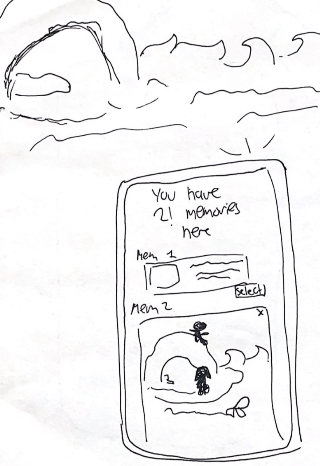 You have
2! memories
here
Mem 1
Select
Mem 2
x